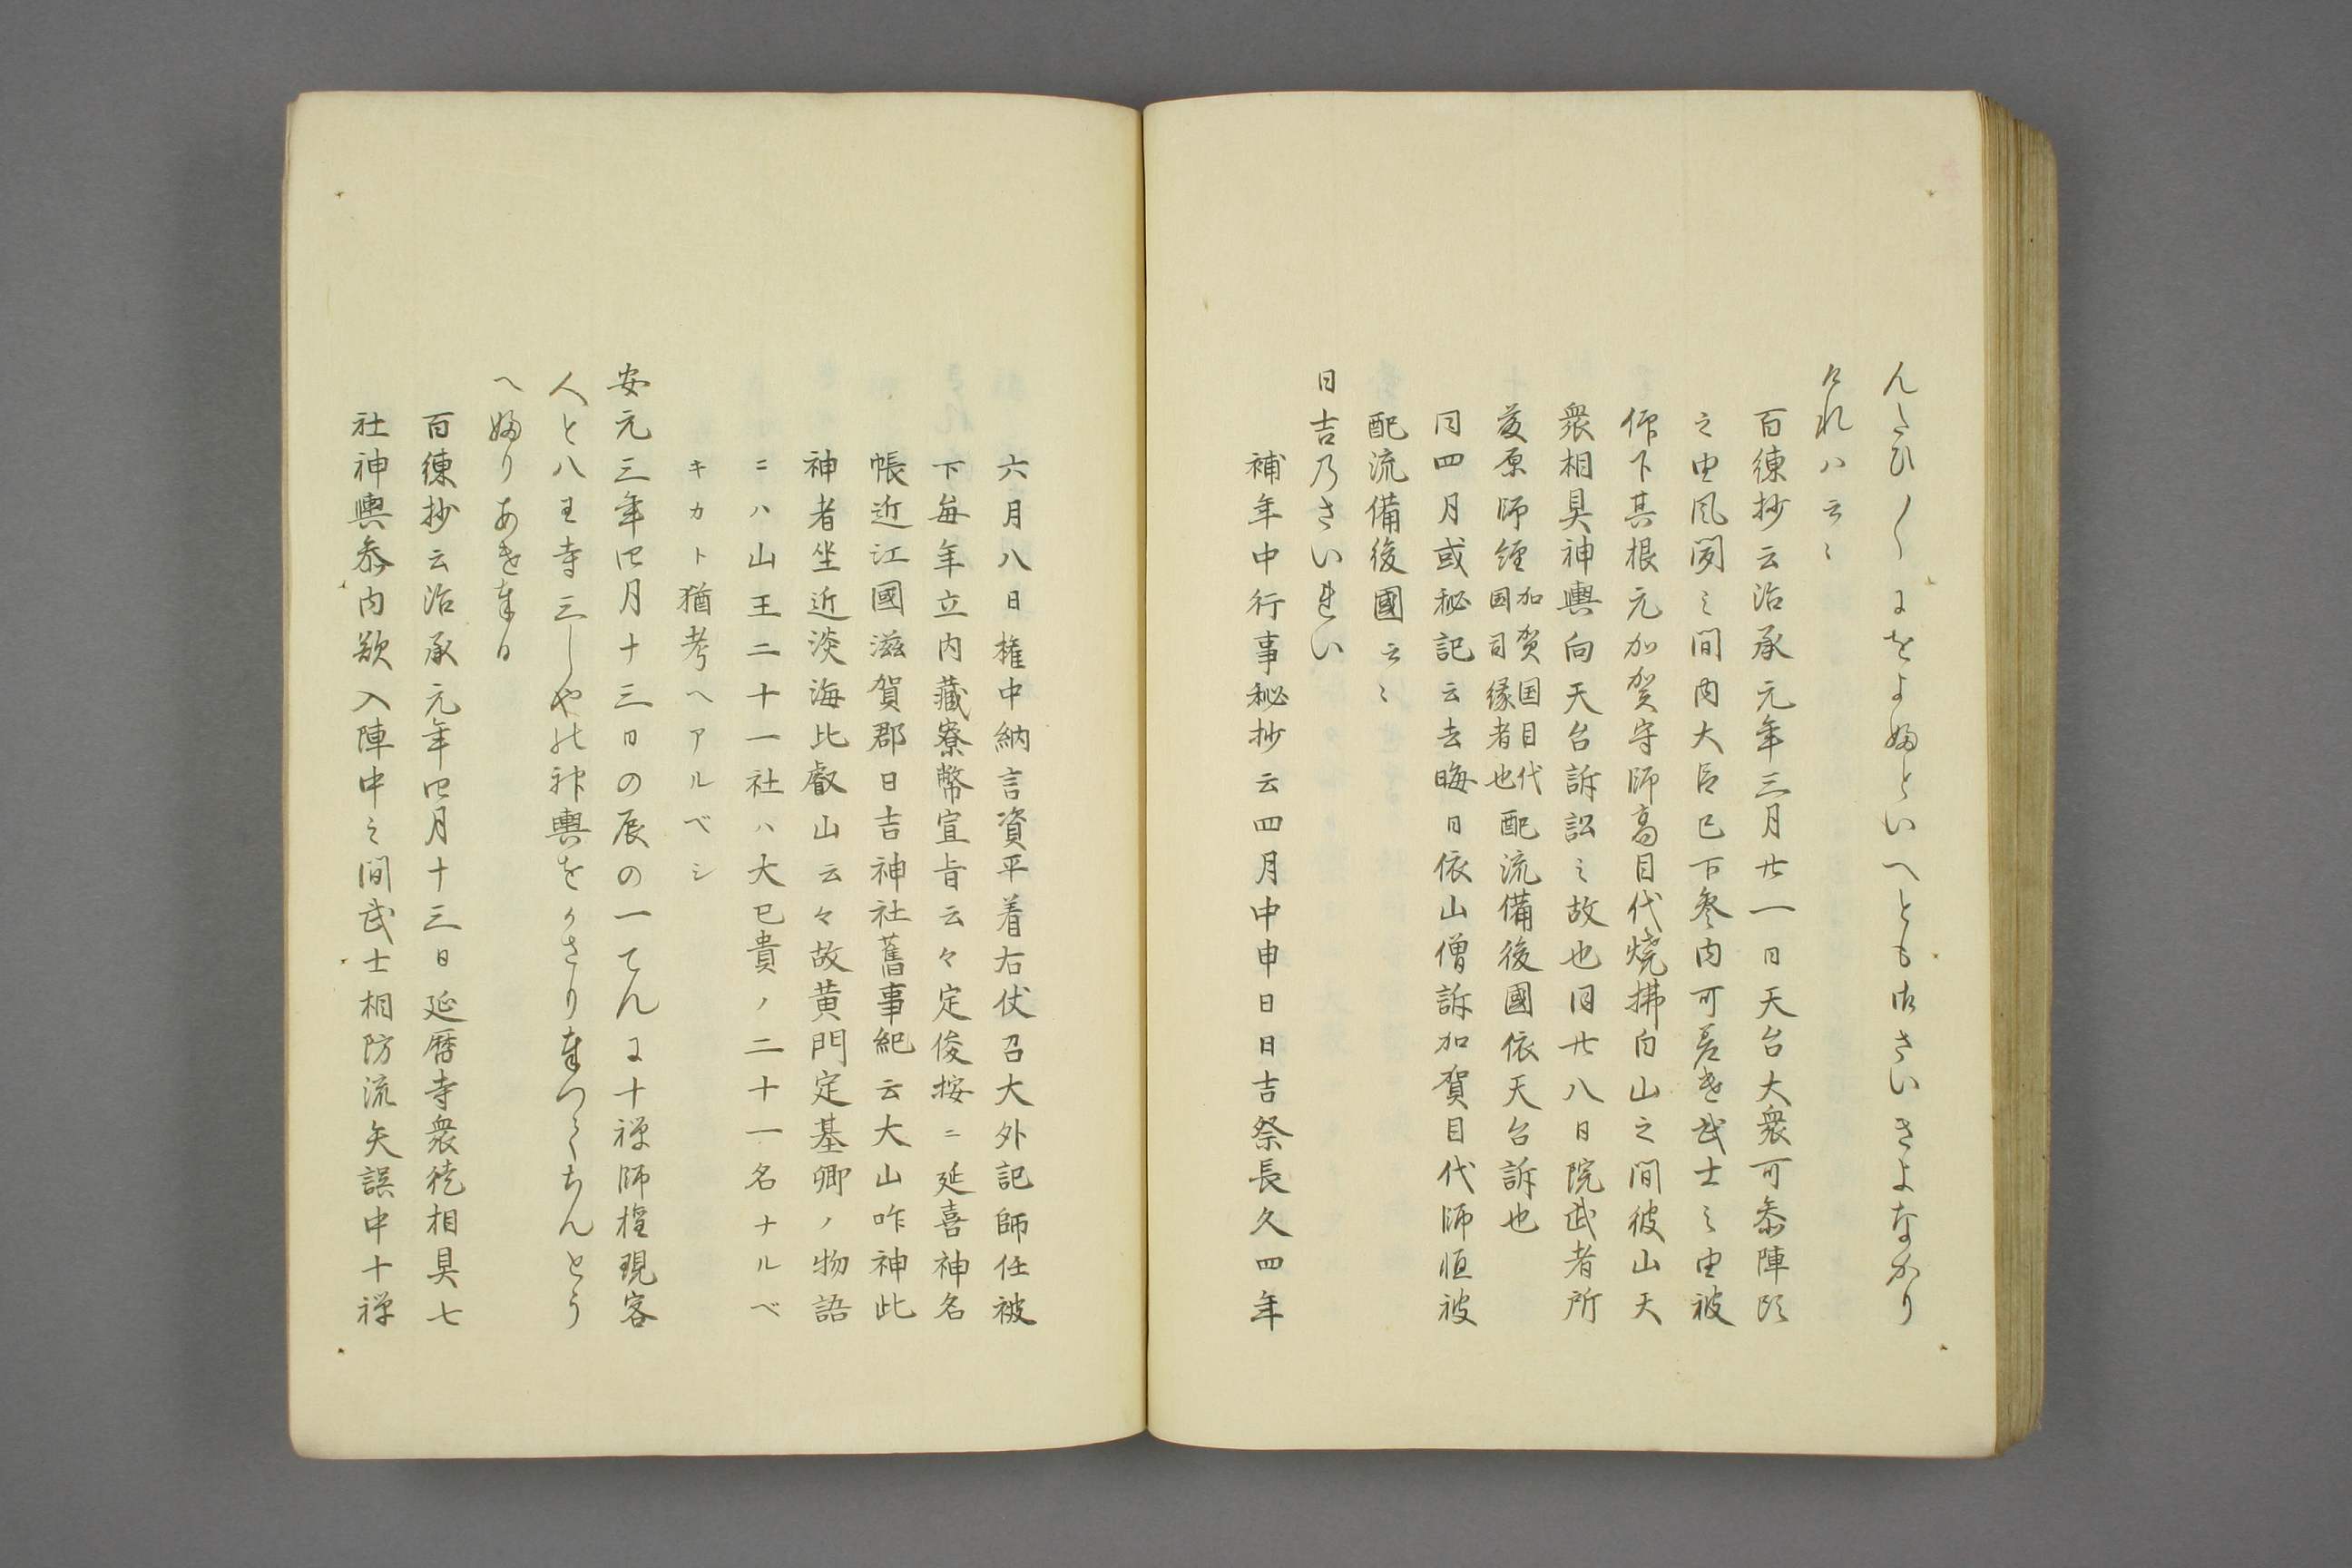 んたひ〱にをよふといへとも御さいきよなかり
けれハ云〻
百練抄云治承元年三月廿一日天台大衆可参陣頭
之由風聞之間内大臣已下参内可差遣武士之由被
仰下其根元加賀守師高目代焼拂白山之間彼山天
衆相具神輿向天台訴訟之故也同廿八日院武者所
藤原師経加賀国目代国司縁者也配流備後國依天台訴也
同四月或秘記云去晦日依山僧訴加賀目代師恒被
配流備後國云〻
日吉乃さいれい
補年中行事秘抄云四月中申日日吉祭長久四年
六月八日権中納言資平着右仗召大外記師任被
下毎年立内藏寮幣宣旨云々定俊按ニ延喜神名
帳近江國滋賀郡日吉神社舊事紀云大山咋神此
神者坐近淡海比叡山云々故黄門定基卿ノ物語
ニハ山王二十一社ハ大已貴ノ二十一名ナルベ
キカト猶考ヘアルベシ
安元三年四月十三日の辰の一てんに十禅師権現客
人と八王寺三しやの神輿をかさり奉つてちんとう
へふりあけ奉る
百練抄云治承元年四月十三日延暦寺衆徒相具七
社神輿参内欲入陣中之間武士相防流矢誤中十禅